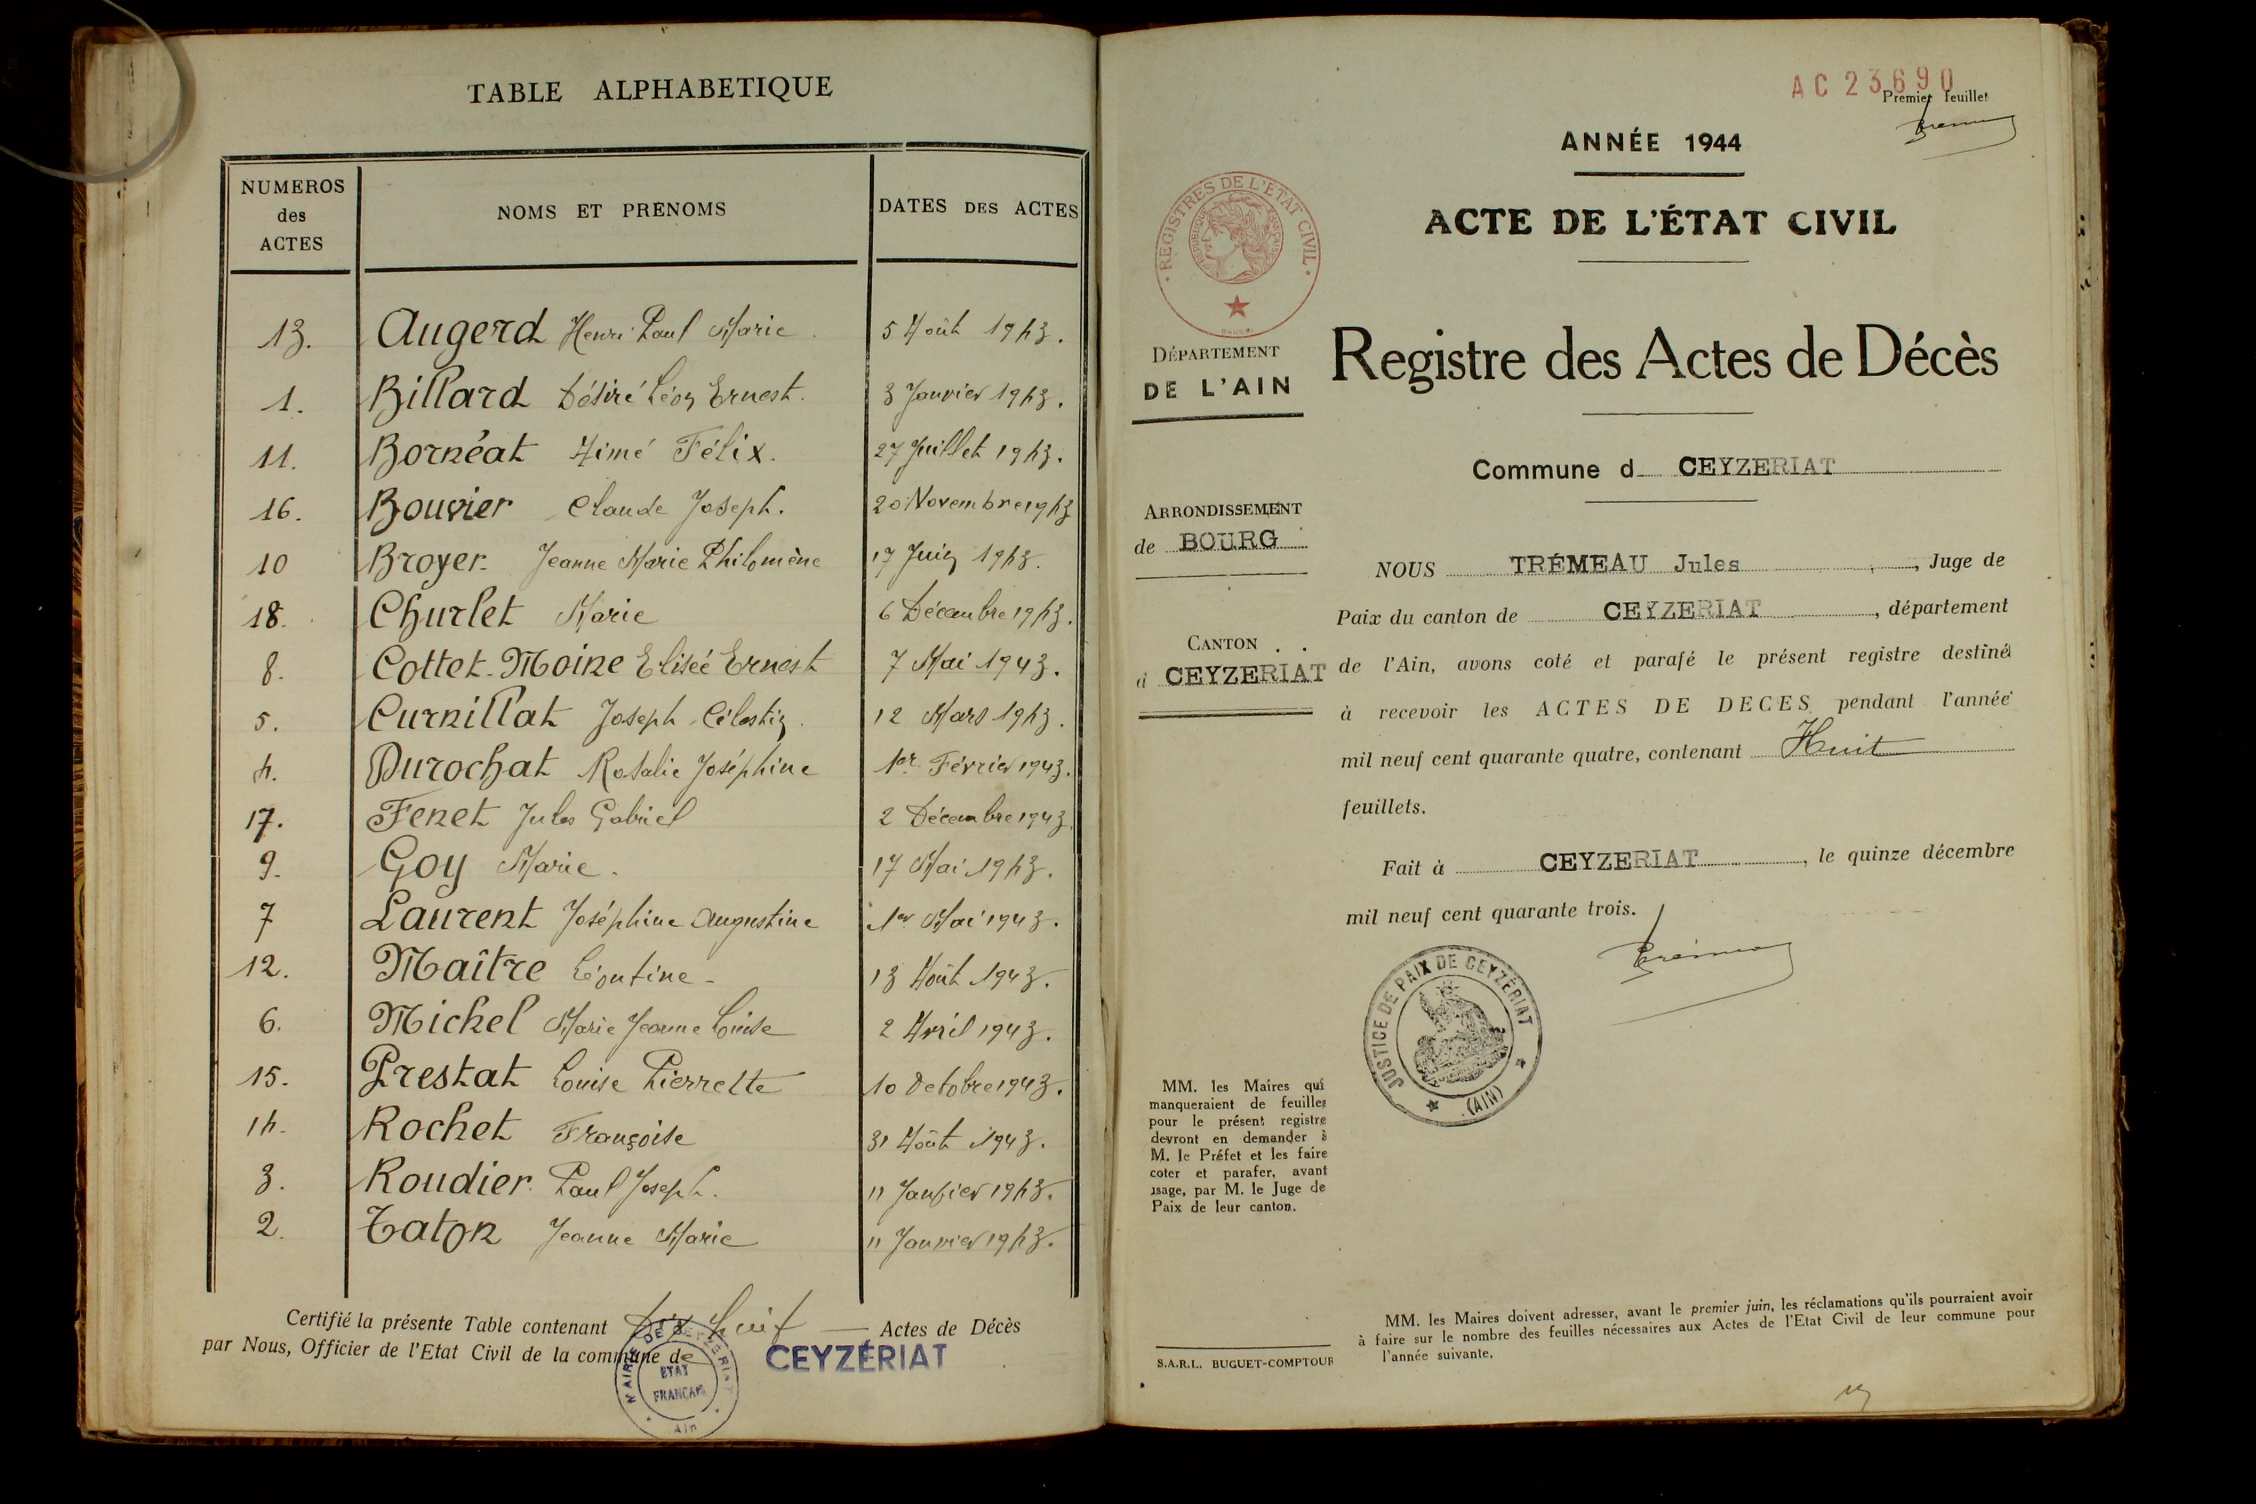 TABLE ALPHABETIQUE
NUMEROS des ACTES
NOMS ET PRENOMS
DATES DES ACTES
13. Augerd Henri Paul Marie 5 Août 1943.
1. Billard Désiré Léon Ernest. 3 Janvier 1943.
11. Bornéat Aimé Félix. 27 Juillet 1943.
16. Bouvier Claude Joseph. 20 Novembre 1943
10 Broyer. Jeanne Marie Philomène 17 Juin 1943.
18. Churlet Marie 6 Décembre 1943.
8. Cottet-Moine Elisée Ernest 7 Mai 1943.
5. Curnillat Joseph Célestin. 12 Mars 1943.
4. Durochat Rosalie Joséphine 1er Février 1943.
17. Fenet Jules Gabriel 2 Décembre 1943
9. Goy Marie. 17 Mai 1943.
7 Laurent Joséphine Augustine 1er Mai 1943.
12. Maître Léontine - 13 Août 1943.
6. Michel Marie Jeanne Louise 2 Avril 1943.
15. Prestat Louise Pierrette 10 Octobre 1943.
14. Rochet Françoise 31 Août 1943.
3. Roudier. Paul Joseph. 11 Janvier 1943.
2. Taton Jeanne Marie 11 Janvier 1943.
Certifié la présente Table contenant Dix huit Actes de Décès
par Nous, Officier de l'Etat Civil de la commune de CEYZÉRIAT
MAIRIE DE CEYZERIAT
ETAT
FRANÇAIS
Ain
AC 23690
Premier feuillet
ANNÉE 1944
ACTE DE L'ÉTAT CIVIL
REGISTRES DE L'ETAT CIVIL
REPUBLIQUE FRANÇAISE
Registre des Actes de Décès
DÉPARTEMENT
DE L'AIN
Commune d CEYZERIAT
ARRONDISSEMENT
de BOURG
CANTON
d CEYZERIAT
NOUS TRÉMEAU Jules, Juge de
Paix du canton de CEYZERIAT, département
de l'Ain, avons coté et parafé le présent registre destiné
à recevoir les ACTES DE DECES pendant l'année
mil neuf cent quarante quatre, contenant Huit
feuillets.
Fait à CEYZERIAT, le quinze décembre
mil neuf cent quarante trois.
JUSTICE DE PAIX DE CEYZÉRIAT
(AIN)
MM. les Maires qui
manqueraient de feuilles
pour le présent registre
devront en demander à
M. le Préfet et les faire
coter et parafer, avant
usage, par M. le Juge de
Paix de leur canton.
S.A.R.L. BUGUET-COMPTOUR
MM. les Maires doivent adresser, avant le premier juin, les réclamations qu'ils pourraient avoir
à faire sur le nombre des feuilles nécessaires aux Actes de l'Etat Civil de leur commune pour
l'année suivante.